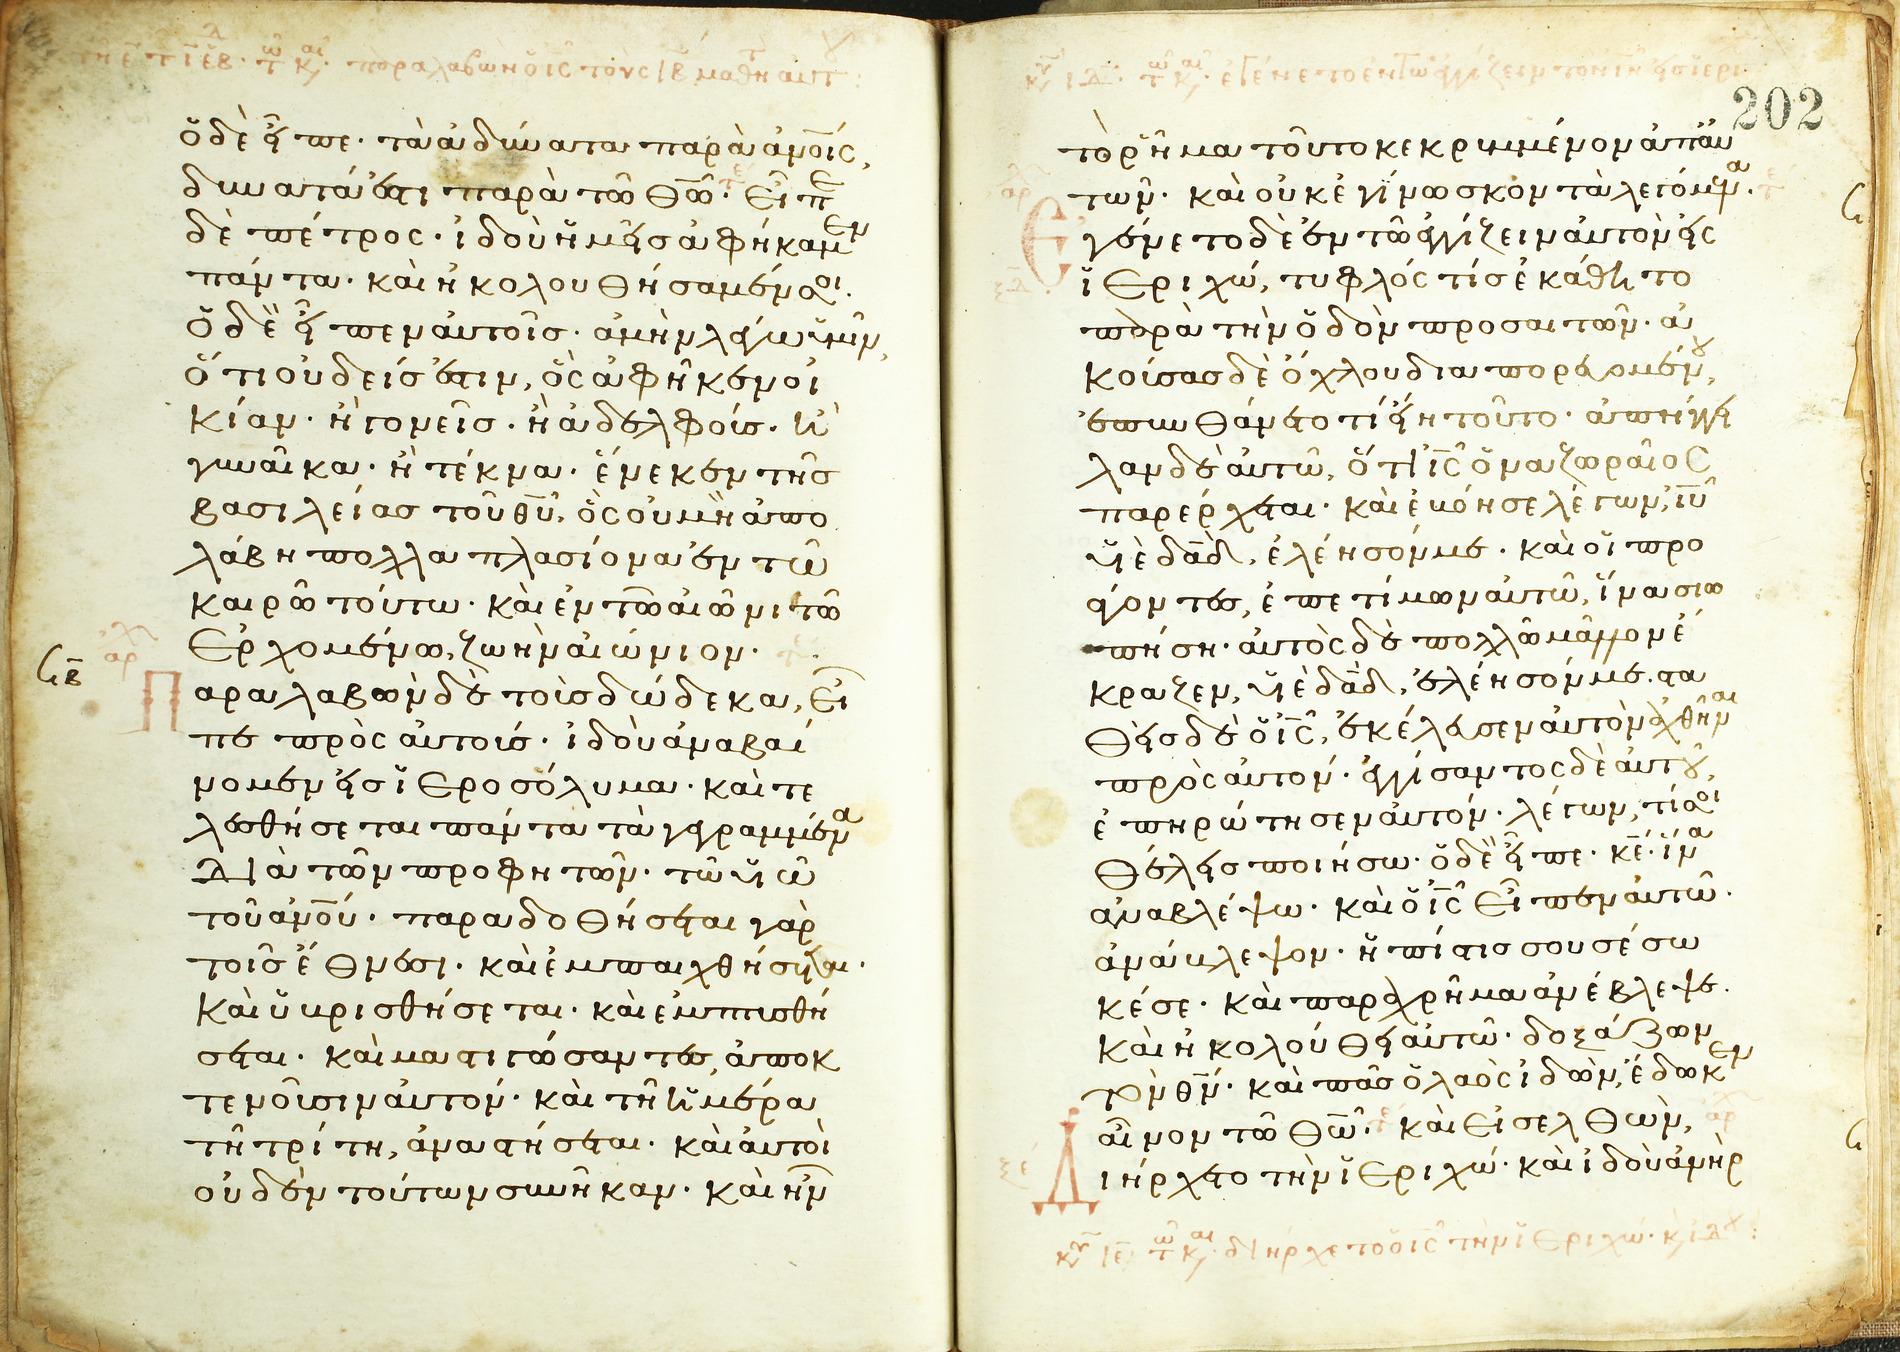 τῇ ε̅ τ ι̅ε̅ ἑβ· τῷ και· παραλαβὼν ὁ ις τοὺς ιβ μαθητ αὐτοῦ:
ὁ δὲ εἶπε· τὰ ἀδύνατα παρὰ ἀνοις,
δυνατά ἐστι παρὰ τῶ θω· Εἶπε
δὲ πέτρος· ἰδοὺ ἡμεῖς ἀφήκαμεν
πάντα· καὶ ἠκολουθήσαμέν σοι·
ὁ δὲ εἶπεν αὐτοῖς· ἀμὴν λέγω ὑμῖν,
ὅτι οὐδείς ἐστιν, ὃς ἀφῆκεν οἰ
κίαν· ἢ γονεῖς· ἢ ἀδελφοίς· ἢ
γυναῖκα· ἢ τέκνα· ἕνεκεν τῆς
βασιλείας τοῦ θυ, ὃς οὐ μὴ ἀπο
λάβη πολλαπλασίονα ἐν τῶ
καιρῶ τούτω· καὶ ἐν τῶ αἰῶνι τῶ
Ἐρχομένω, ζωὴν αἰώνιον·
Παραλαβὼν δὲ τοὺς δώδεκα, Εἶ
πε πρὸς αὐτοίς· ἰδοὺ ἀναβαί
νομεν εἰς ἱΕροσόλυμα· καὶ τε
λεσθήσεται πάντα τὰ γεγραμμένα
Διὰ τῶν προφητῶν· τῶ υἱῶ
τοῦ ανου· παραδοθήσεται γὰρ
τοῖς ἔθνεσι· καὶ ἐμπαιχθήσεται·
Καὶ ὑβρισθήσεται· καὶ ἐμπτυσθή
σεται· καὶ μαστιγώσαντες, ἀποκ
τενοῦσιν αὐτόν· καὶ τῆ ἡμέρα
τῆ τρίτη, ἀναστήσεται· καὶ αὐτοὶ
οὐδὲν τούτων συνῆκαν· καὶ ἦν
202
τὸ ρῆμα τοῦτο κεκρυμμένον ἀπ' αυ
τῶν· καὶ οὐκ ἐγίνωσκον τὰ λεγόμενα·
Ἐγένετο δὲ ἐν τῶ ἐγγίζειν αὐτὸν εἰς
ἱΕριχώ, τυφλός τίς ἐκάθητο
παρὰ τὴν ὁδὸν προσαιτῶν· ἀ
κούσας δὲ ὄχλου διαπορευομένου,
ἐπυνθάνετο τί εἴη τοῦτο· ἀπήγγει
λαν δὲ αὐτῶ, ὅτι ις ὁ ναζωραῖος
παρέρχεται· καὶ ἐβόησε λέγων, ιυ
υἱὲ δαδ, ἐλέησόν με· καὶ οἱ προ
άγοντες, ἐπετίμων αὐτῶ, ἵνα σιω
πήση· αὐτὸς δὲ πολλῶ μᾶλλον ἔ
κραζεν, υἱὲ δαδ, ἐλέησόν με· στα
θεὶς δὲ ὁ ις, ἐκέλευσεν αὐτὸν ἀχθῆναι
πρὸς αὐτον· ἐγγίσαντος δὲ αὐτοῦ,
ἐπηρώτησεν αὐτόν· λέγων, τί σοι
Θέλεις ποιήσω· ὁ δὲ εἶπε· κε· ἵνα
ἀναβλέψω· καὶ ὁ ις Εἶπεν αὐτῶ·
ἀνάβλεψον· ἡ πίστις σου σέσω
κέ σε· καὶ παραχρῆμα ἀνέβλεψε·
Καὶ ἠκολούθει αὐτῶ· δοξάζων
τὸν θν· καὶ πᾶς ὁ λαὸς ἰδὼν, ἔδωκεν
αἶνον τῶ θω· καὶ Εἰσελθὼν,
Διήρχετο τὴν ἱΕριχώ· καὶ ἰδοὺ ἀνὴρ
κυ ιε τῷ και· διήρχετο ὁ ις τὴν ἱΕριχώ·